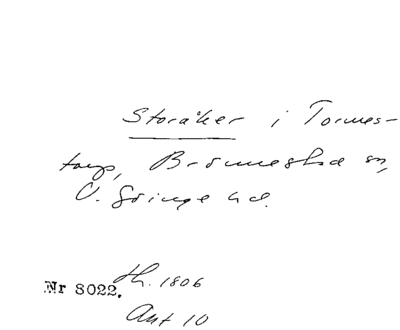 Storåker i Tormes-
torp, Brönnestad sn,
V. Göinge hd.
Nr 8022. 1806
Akt 10